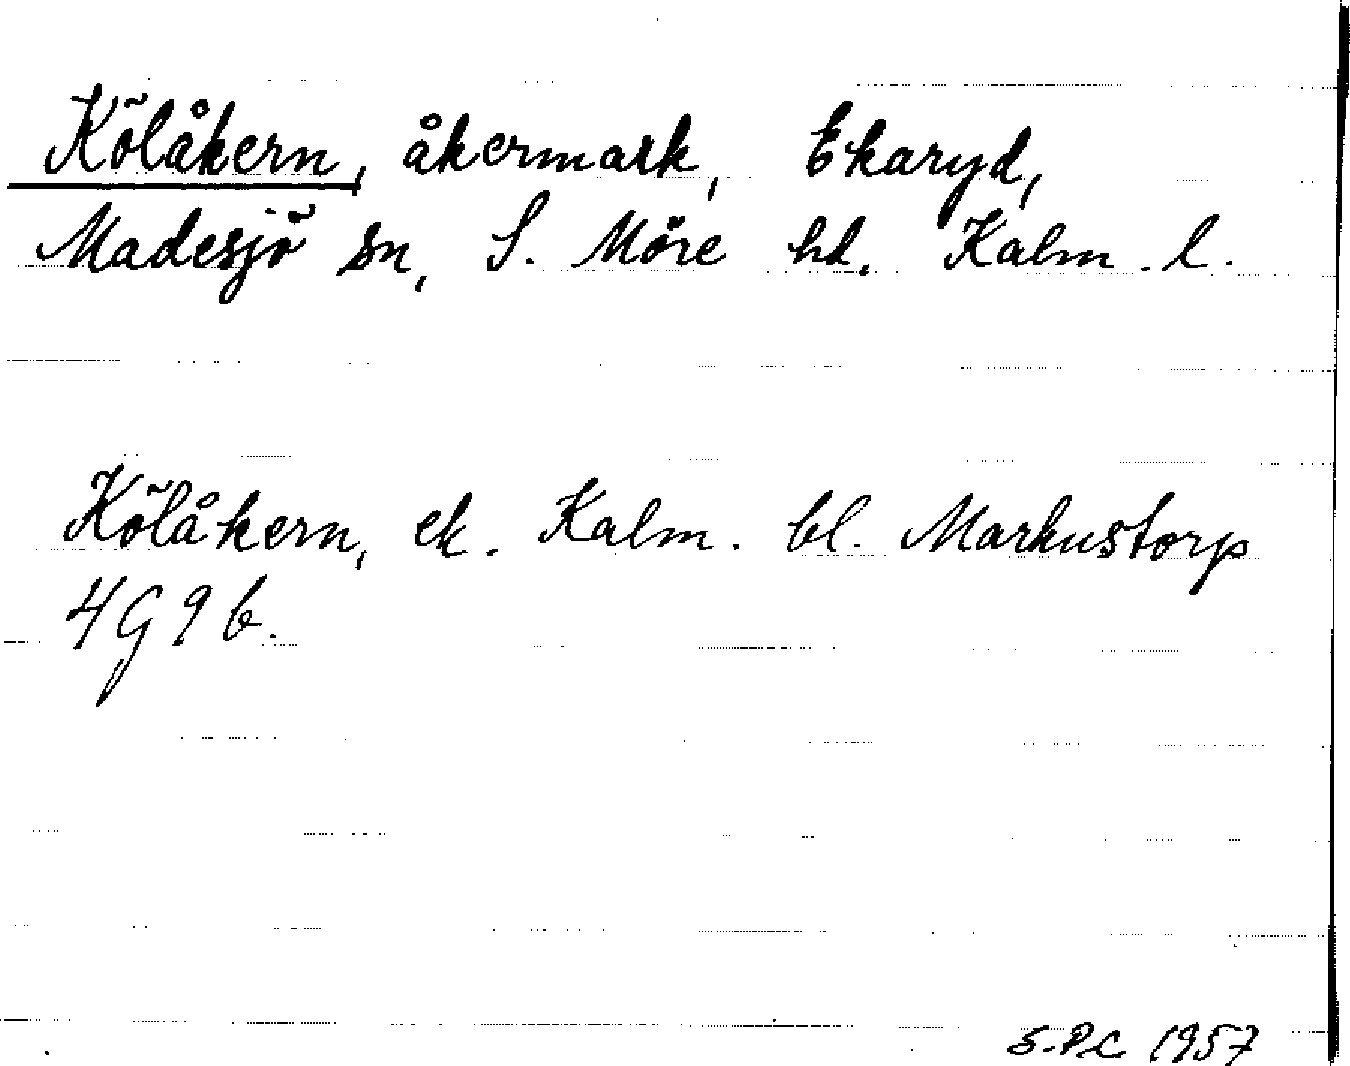 Kölåkern, åkermark, Ekaryd,
Madesjö sn, S. Möre hd. Kalm. l.
Kölåkern, ek. Kalm. bl. Markustorp
4G9b.
S.P.C 1957